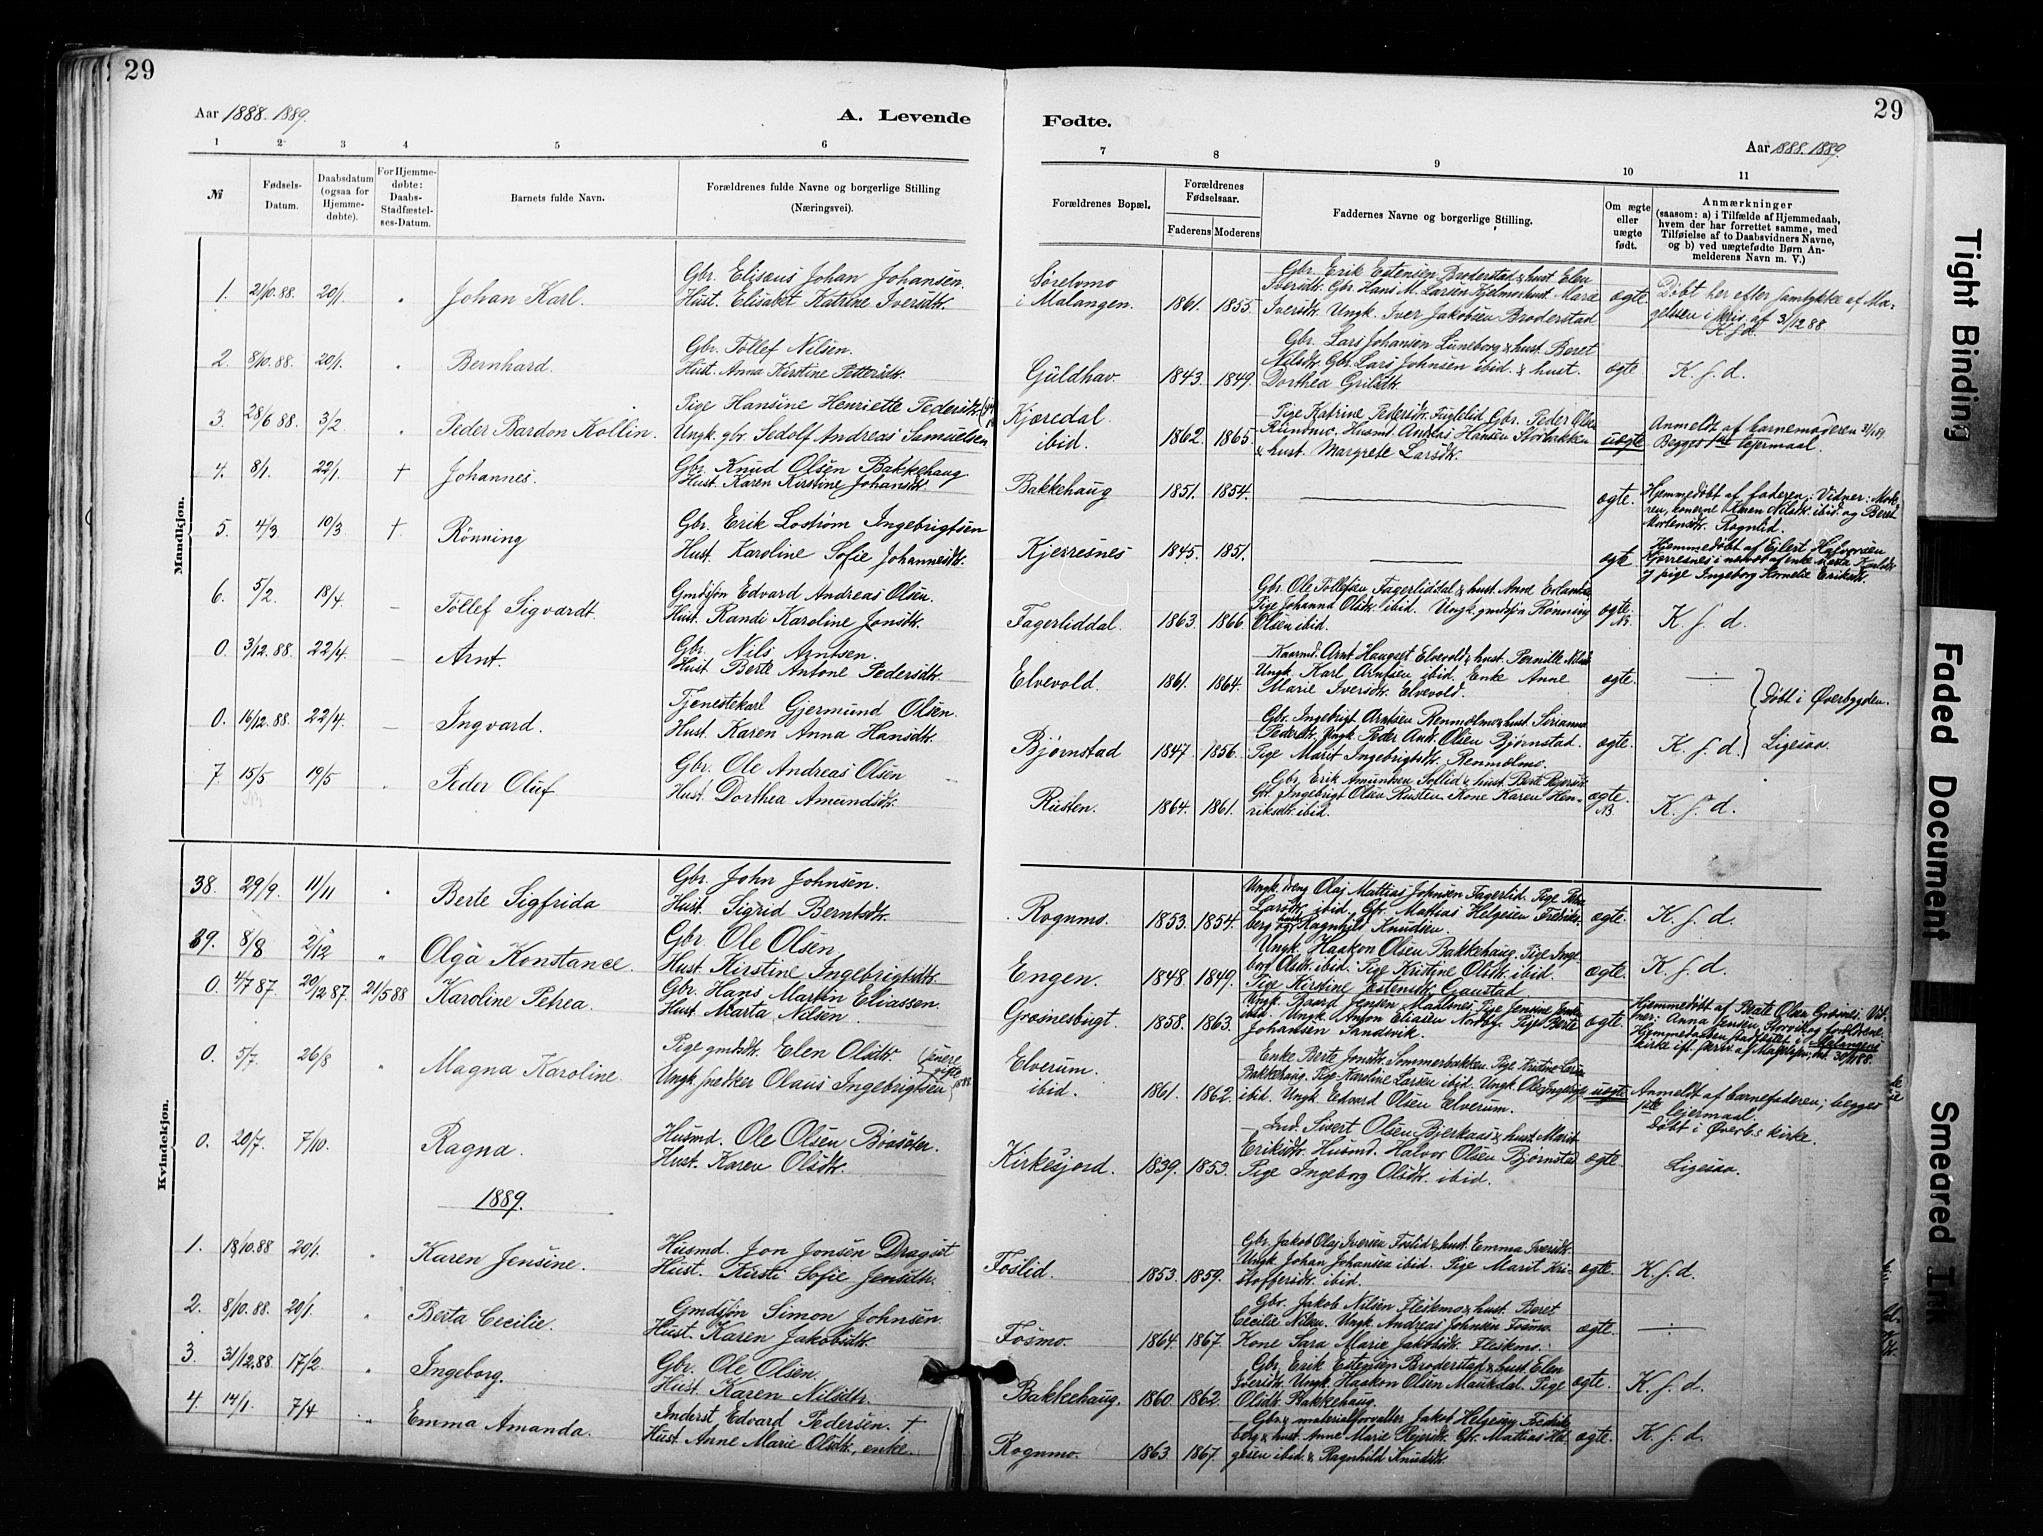 29
Aar 1888. 1889.
A. Levende
1 2 3 4 5 6
№
Fødsels-Datum.
Daabsdatum (ogsaa for Hjemmedøbte).
For Hjemmedøbte: Daabs-Stadfæstelses-Datum.
Barnets fulde Navn.
Forældrenes fulde Navne og borgerlige Stilling
(Næringsvei).
Mandkjøn.
1. 2/10.88. 20/1. " Johan Karl. Gbr. Elisæus Johan Johansen.
Hust. Elisabet Katrine Iversdtr.
2. 8/10.88. 20/1. " Bernhard. Gbr. Tollef Nilsen.
Hust. Anna Kirstine Pettersdtr.
3. 28/6 88 3/2 " Peder Bardon Kollin. Pige Hansine Henriette Pedersdtr.
Ungk. gbr. Sedolf Andreas Samuelsen
4. 8/1. 22/1. † Johannes. Gbr. Knud Olsen Bakkehaug
Hust. Karen Kirstine Johansdtr.
5. 4/3 10/3 † Rönning Gbr. Erik Lostrøm Ingebrigtsen
Hust. Karoline Sofie Johannesdtr.
6. 5/2. 18/4 — Tollef Sigvardt. Gmdsøn Edvard Andreas Olsen.
Hust. Randi Karoline Jonsdtr.
0. 3/12.88. 22/4. — Arnt. Gbr. Nils Arntsen.
Hust. Berte Antone Pedersdtr.
0. 16/12.88. 22/4. — Ingvard. Tjenestekarl Gjermund Olsen.
Hust. Karen Anna Hansdtr.
7. 15/5 19/5 " Peder Oluf Gbr. Ole Andreas Olsen
Hust. Dorthea Amundsdtr.
Kvindekjøn.
38. 29/9. 11/11 " Berte Sigfrida Gbr. John Johnsen.
Hust. Sigrid Berntsdtr.
39. 8/8 2/12 " Olga Konstance. Gbr. Ole Olsen
Hust. Kirstine Ingebrigtsdtr.
0. 4/7 87 20/12 87. 21/5 88 Karoline Petrea. Gbr. Hans Martin Eliassen.
Hust. Marta Nilsen
0. 5/7. 26/8 " Magna Karoline. Pige gmdsdtr. Elen Olsdtr.
Ungk. snedker Olaus Ingebrigtsen
0. 20/7. 7/10. Ragna. Husmd. Ole Olsen
Hust. Karen Olsdtr.
1889.
1. 18/10.88 20/1. " Karen Jensine. Husmd. Jon Jonsen Dragset
Hust. Kirsti Sofie Jensdtr.
2. 8/10.88. 20/1 " Berta Cecilie. Gmdsøn Simon Johnsen
Hust. Karen Jakobsdtr.
3. 31/12.88. 17/2. " Ingeborg. Gbr. Ole Olsen.
Hust. Karen Nilsdtr.
4. 14/1. 7/4 " Emma Amanda. Inderst Edvard Pedersen. †
Hust. Anne Marie Olsdtr., enke.
29
Fødte.
Aar 1888. 1889.
7 8 9 10 11
Forældrenes Bopæl.
Forældrenes Fødselsaar.
Faderens Moderens
Faddernes Navne og borgerlige Stilling.
Om ægte eller uægte født.
Anmærkninger
(saasom: a) i Tilfælde af Hjemmedaab,
hvem der har forrettet samme, med
Tilføielse af to Daabsvidners Navne,
og b) ved uægtefødte Børn Anmelderens Navn m. V.)
Sørelvmo i Malangen. 1861. 1855. Gbr. Erik Estensen Broderstad & hust. Elen
Iversdtr. Gbr. Hans M. Larsen Hjelmo & hust. Maria
Iversdtr. Ungk. Iver Jakobsen Broderstad
ægte Döbt her efter samtykke af Magelssen i skriv. af 31/12 88. K. f. d.
Guldhav. 1843. 1849. Gbr. Lars Johansen Luneborg & hust. Beret
Nilsdtr. Gbr. Lars Johnsen ibid. & hust.
Dorthea
ægte K. f. d.
Kjæredal ibid. 1862. 1865. Pige Katrine Pedersdtr. Fuglelid Gbr. Peder
Husmd. Andreas Hansen Storbakken
& hust. Margrete Larsdtr.
uægte Anmeldt af barnemoderen
Begges 1ste lejermaal.
Bakkehaug 1851. 1854. ægte. Hjemmedöbt af faderen; Vidner: Moderen, konerne Karen Nilsdtr. ibid. og Beret
Mortensdtr. Rognlid.
Kjerresnes 1845. 1851. ægte Hjemmedöbt af Ejlert Halvorsen
Kjerresnes i nærvær af enke Marta
og pige Ingeborg Kornelie Eriksdtr.
Fagerliddal. 1863. 1866. Gbr. Ole Tollefsen Fagerliddal & hust. Anne
Pige Johanna Olsdtr. ibid. Ungk. gmdsøn Rønning
Olsen ibid.
ægte. K. f. d.
Elvevold. 1861. 1864. Kaarmd. Arnt Haugset Elvevold & hust. Pernille
Ungk. Karl Arntsen ibid. Enke Anne
Marie Iversdtr. Elvevold.
ægte. Döbt i Øverbygden.
Bjørnstad 1847. 1856. Gbr. Ingebrigt Arntsen Renmælmo & hust. Serianna
Pedersdtr. Ungk. Peder And. Olsen Bjørnstad.
Pige Marit Ingebrigtsdtr. Renmælmo.
ægte. K. f. d. Ligesaa
Rusten. 1864. 1861. Gbr. Erik Amundsen Sollid & hust. Berte
Gbr. Ingebrigt Olsen Rusten, Kone Karen Henriksdtr. ibid.
ægte. K. f. d.
Rognmo. 1853. 1854. Ungk. dreng Olaj Mattias Johnsen Fagerlid. Pige
Larsdtr. ibid. Gbr. Mattias Helgesen Fredriksberg og Ragnhild Knudsen.
ægte. K. f. d.
Engen. 1848. 1849. Ungk. Haakon Olsen Bakkehaug. Pige Ingeborg Olsdtr. ibid. Pige Kristine Olsdtr. ibid.
Pige Kirstine Estensdtr. Gaustad
ægte. K. f. d.
Grøsnesbugt. 1858. 1863. Ungk. Baard Jensen Maalsnes, Pige Jensine
ibid. Ungk. Anton Eliasen Nordby. Pige Berte
Johansen Sandvik
ægte. Hjemmedöbt af Beate Olsen Grøsnes. Vidner: Anna Jensen, Storvik og forældrene.
Hjemmedaaben stadfæstet i Malangens
kirke ifl. skriv. af Magelssen, dat. 30/ 88.
Elverum. ibid. 1861. 1862. Enke Berte Jonsdtr. Sommerbakken. Pige Kristine Larsen
Bakkehaug. Pige Karoline Larsen ibid. Ungk. Ole Ingebrigts.
ibid. Ungk. Edvard Olsen Elverum.
uægte. Anmeldt af barnefaderen; begges
1ste lejermaal.
Döbt i Øverb.s kirke.
Kirkesjord. 1839. 1853. Ind. Sivert Olsen Bjerkaas & hust. Marit
Eriksdtr. Husmd. Halvor Olsen Bjørnstad
Pige Ingeborg Olsdtr. ibid.
ægte. Ligesaa.
Foslid. 1853. 1859. Gbr. Jakob Olaj Iversen Foslid & hust. Emma Iversdtr.
Ungk. Johan Johansen ibid. Pige Marit Kristoffersdtr. ibid.
ægte. K. f. d.
Fosmo. 1864. 1867. Gbr. Jakob Nilsen Fleskmo & hust. Beret
Cecilie Nilsen. Ungk. Andreas Johnsen Fosmo.
Kone Sara Marie Jakobsdtr. Fleskmo.
ægte.
Bakkehaug. 1860. 1862. Gbr. Erik Estensen Broderstad & hust. Elen
Iversdtr. Ungk. Haakon Olsen Maukdal. Pige
Olsdtr. Bakkehaug.
ægte. K. f. d.
Rognmo. 1863 1867. Gbr. & materialforvalter Jakob Helgesen Fredriksberg & hust. Anne Marie Pejersdtr. Gbr. Mattias Helgesen ibid. & Ragnhild Knudsdtr.
ægte. K. f. d.
Tight Binding
Faded Document
Smeared Ink